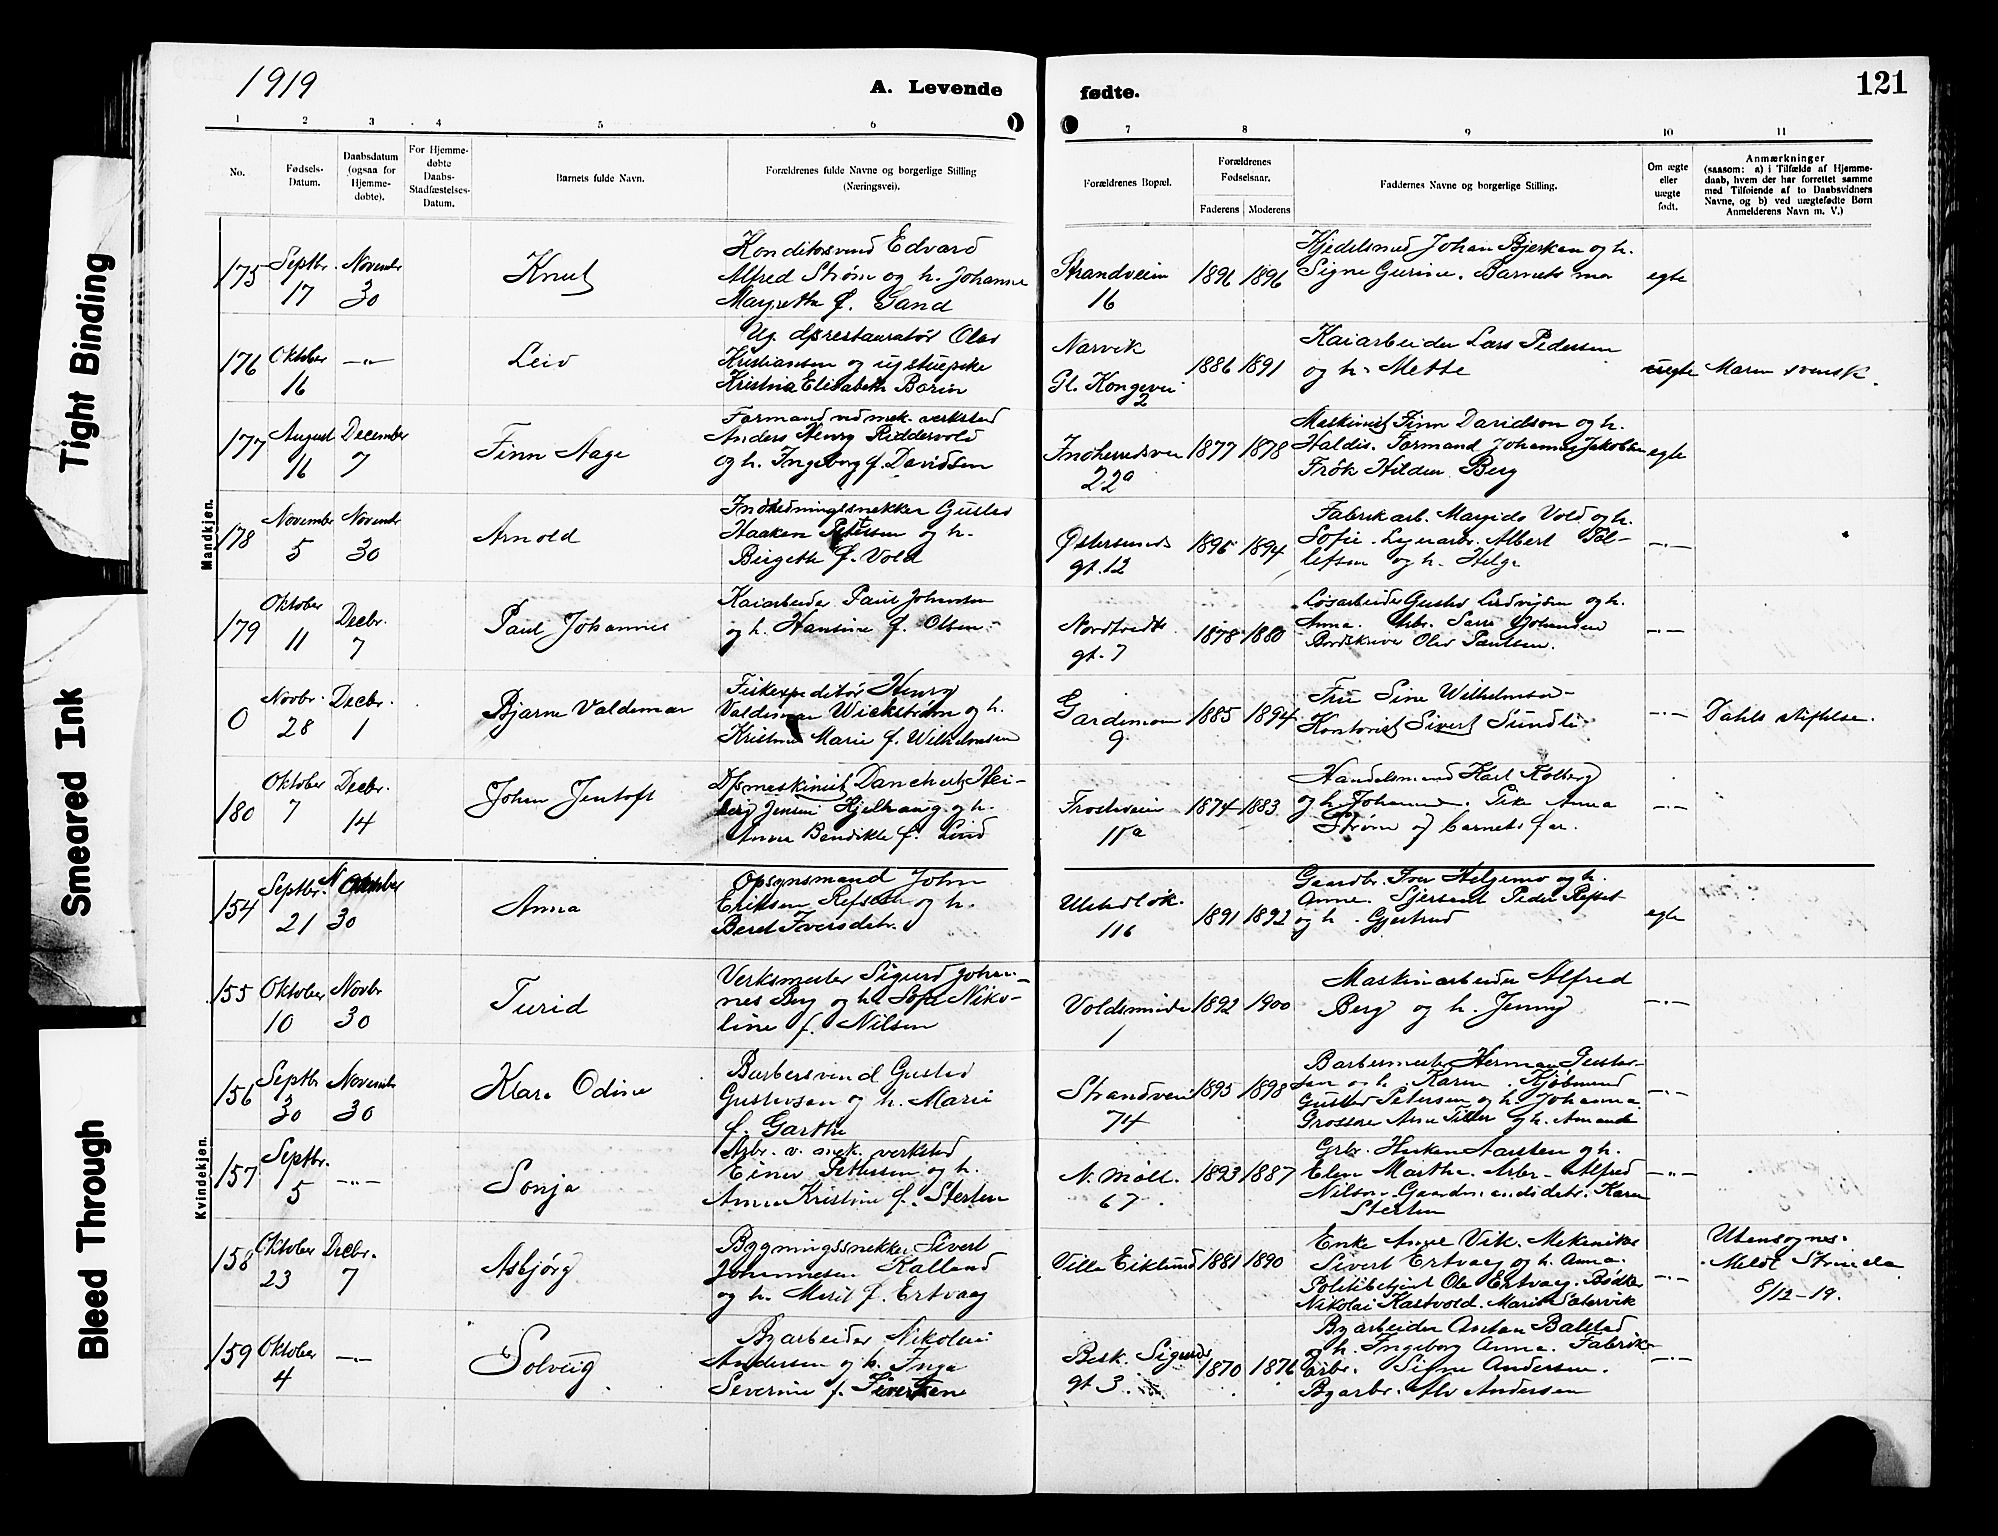 1919
A. Levende fødte.
121
Tight Binding
Smeared Ink
Bleed Through
1 2 3 4 5 6 7 8 9 10 11
No.
Fødsels-Datum.
Daabsdatum (ogsaa for Hjemme-døbte).
For Hjemme-døbte Daabs-Stadfæstelses-Datum.
Barnets fulde Navn.
Forældrenes fulde Navne og borgerlige Stilling (Næringsvei).
Forældrenes Bopæl.
Forældrenes Fødselsaar.
Faderens Moderens
Faddernes Navne og borgerlige Stilling.
Om ægte eller uægte født.
Anmærkninger
(saasom: a) i Tilfælde af Hjemme-
daab, hvem der har forrettet samme
med Tilføiende af to Daabsvidners
Navne, og b) ved uægtefødte Børn
Anmelderens Navn m. V.)
Mandkjøn.
175 Septbr. 17 Novembr 30
Knut
Konditorsvend Edvard
Alfred Strøm og h. Johanne
Margrethe f. Sand
Strandveien 16
1896 1896
Kjedelsmed Johan Bjerkan og h.
Signe Gurine. Barnets mor
egte
176 Oktober 16 -"-
Leiv
Ug. dpsrestauratør Olav
Kristiansen og ug stuepike
Kristina Elisabeth Borin
Narvik
Gl. Kongevei 2
1886 1891
Kaiarbeider Lars Pedersen
og h. Mette
uegte
Moren svensk.
177 August 16 December 7
Finn Aage
Formand ved mek. verksted
Anders Henry Riddervold
og h. Ingeborg f. Davidsen
Indherredsvei 22a
1877 1878
Maskinist Finn Davidson og h.
Haldis. Formand Johannes Jakobsen
Frøk Hilden Berg
egte
178 November 5 Novembr 30
Arnold
Indredningssnekker Gustav
Haaken Pettersen og h.
Birgethe f. Vold
Østersunds gt. 12
1895 1894
Fabrikarb. Margido Vold og h.
Sofie. Albert
og h. Helga
-"-
179 Oktober 11 Decbr. 7
Paul Johannes
Kaiarbeider Paul Johansen
og h. Hansine f. Olsen
Nordtvedts gt. 7
1878 1880
Løsarbeider Gustav Ludvigsen og h.
Anna. Arb. Johansen
Olav Paulsen.
-"-
0 Novbr. 28 Decbr. 1
Bjarne Valdemar
Fiskexpeditør Henry
Valdemar Wickstrøm og h.
Kristine Marie f. Wilhelmsen
Gardemoen 9
1885 1894
Fru Sine Wilhelmsen
Kontorist Sivert Sundli
-"-
Dahls stiftelse.
180 Oktober 7 Decbr. 14
Johan Jentoft
Dpsmaskinist Danchert Hei-
berg Jensen Hjelhaug og h.
Anna Bendikte f. Lund
Frostveien 11a
1874 1883
Handelsmand Karl Kolberg
og h. Johanna. Pike Anna
Strøm og barnets far.
-"-
Kvindekjøn.
154 Septbr. 21 30
Anna
Opsynsmand John
Eriksen Refseth og h.
Beret Iversdtr.
116
1891 1892
Gaardbr. Iver Helgemo og h.
Anne. Sjersant Peder Refset
og h. Gjertrud
egte
155 Oktober 10 Novbr 30
Turid
Verksmester Sigurd Johan-
nes Berg og h. Sofie Niko-
line f. Nilsen
Voldsminde 1
1892 1900
Maskinarbeider Alfred
Berg og h. Jenny
-"-
156 Septbr 30 Novembr 30
Klara Odine
Barbersvend Gustav
Gustavsen og h. Marie
f. Garthe
Strandvei 74
1895 1898
Barbermester Herman Gustav-
sen og h. Karen. Kjøbmand
Gustav Petersen og h. Johanna.
Grosserer Arne Tiller og h. Amanda
-"-
157 Septbr. 5 -"-
Sonja
Arbr. v. mek. verksted
Einar Pettersen og h.
Anna Kristine f. Stertun
N. Møll. 67
1893 1887
Grbr. Haaken Aarsten og h.
Elen Marthe. Arbr. Alfred
Nilsen. Karen
Stertun
-"-
158 Oktober 23 Decbr. 7
Asbjørg
Bygningssnekker Sivert
Johannesen Kalland
og h. Marit f. Ertvaag
Villa Eiklund
1881 1890
Enke Anne Vik. Mekaniker
Sivert Ertvaag og h. Anna.
Politibetjent Ole Ertvaag. Bødker
Nikolai Kastvold. Marit Sætervik
-"-
Utensognes.
Meldt Strinda
8/12-19.
159 Oktober 4 -"-
Solveig
Byarbeider Nikolai
Andersen og h. Inga
Severine f. Sivertsen
Besk. Sigurds gt 3.
1870 1876
Byarbeider Anton Balstad
og h. Ingeborg Anna. Fabrik-
arbr. Signe Andersen.
Byarbr. Alv Andersen
-"-